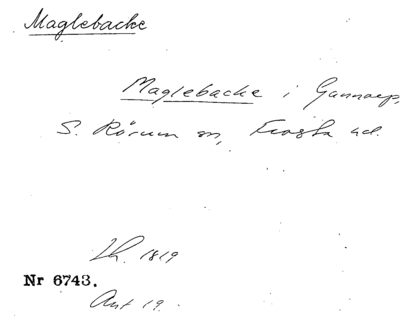 Maglebacke
Maglebacke i Gunnarp,
S. Rörum sn, Frosta hd.
Lh. 1819
Nr 6743.
Ant 19.